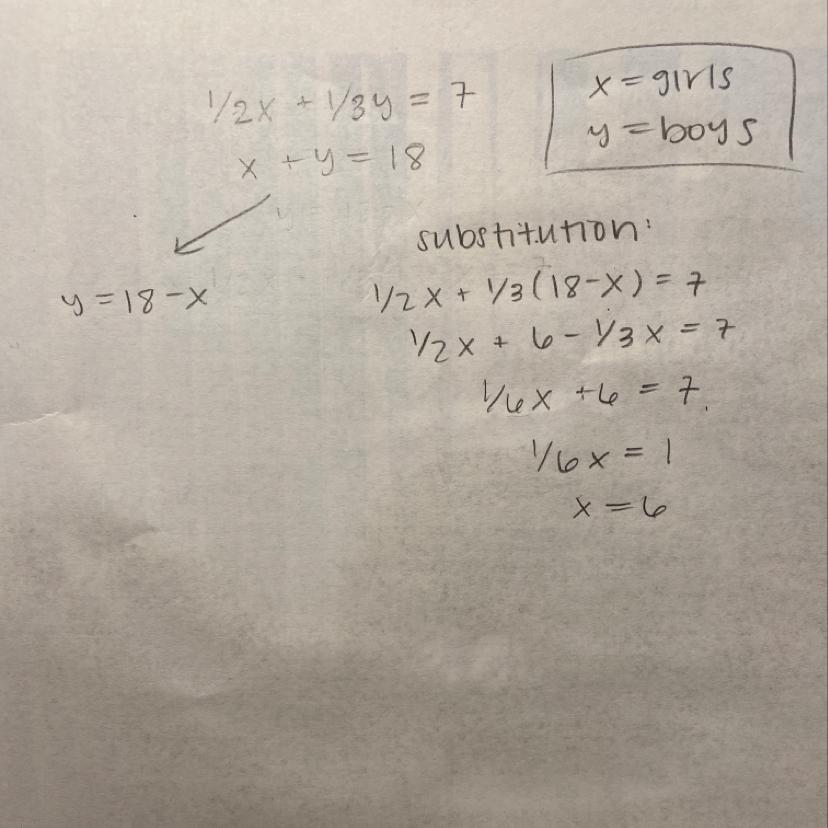 1/2x + 1/3y = 7
x + y = 18
x = girls
y = boys
y = 18 - x
substitution:
1/2x + 1/3(18-x) = 7
1/2x + 6 - 1/3x = 7
1/6x + 6 = 7
1/6x = 1
x = 6